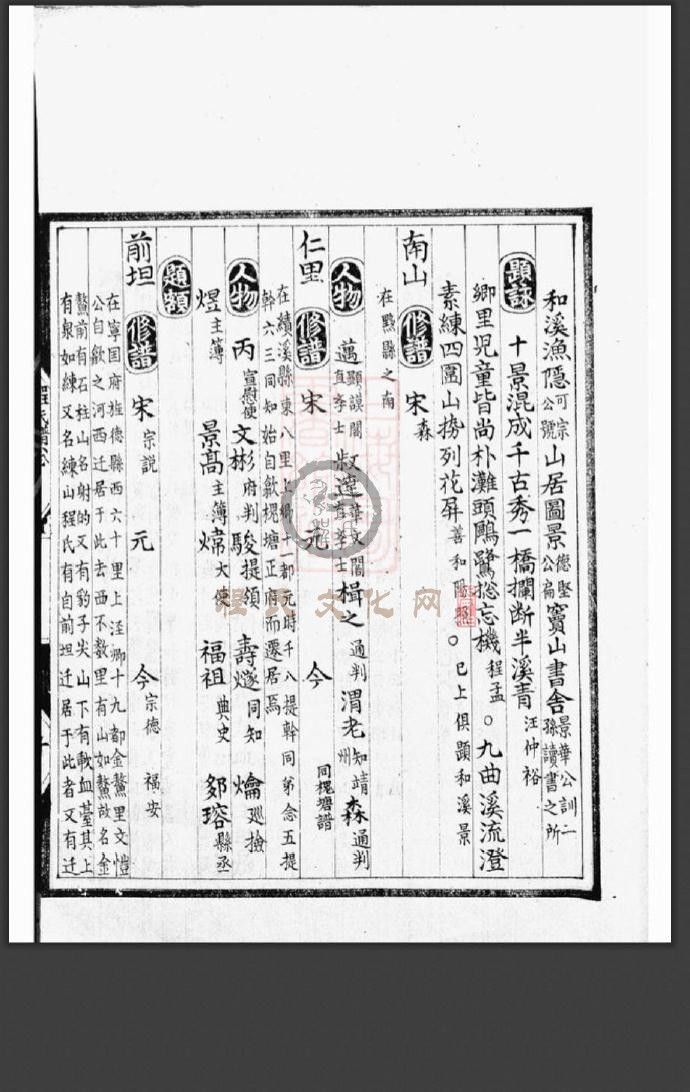 和溪漁隱可宗公號山居圖景德堅公扁寶山書舍景華公訓二孫讀書之所
題詠 十景混成千古秀一橋攔断半溪青汪仲裕
鄉里児童皆尚朴灘頭鷗鷺搃忘機程孟○九曲溪流澄
素練四圍山掵列花屏善和○已上俱題和溪景
南山 修譜 宋森
在黟縣之南
人物 邁顯謨閣直孛士叔達華文閣直孛士楫之通判渭老知靖州森通判
仁里 修譜 宋 元 今同槐塘譜
在績溪縣東八里上鄉十一都元時千八提幹同第念五提
幹六三同知始自歙槐塘正府而遷居焉
人物 丙宣慰使文彬府判駿提領壽燧同知爚廵撿
煜主簿景高主簿煒大使福祖典史郯瑢縣丞
題額
前坦 修譜 宋宗說 元 今宗德 福安
在寧囯府旌德縣西六十里上涇鄉十九都金鰲里文愷
公自歙之河西迁居于此去西不数里有山如鰲故名金
鰲前有石柱山名射的又有豹子尖山下有歃血䑓其上
有泉如練又名練山程氏有自前坦迁居于此者又有迁
程氏文化网